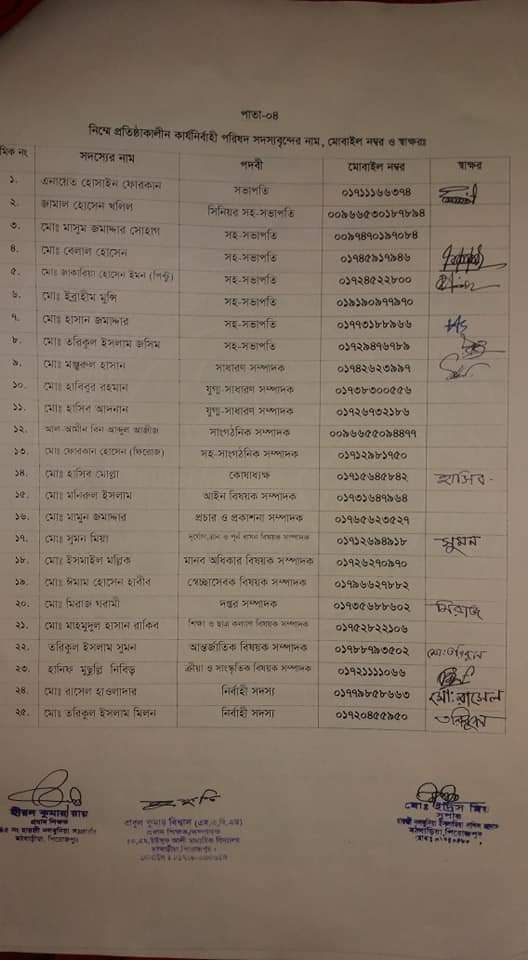 পাতা-০৪
নিম্মে প্রতিষ্ঠাকালীন কার্যনির্বাহী পরিষদ সদস্যবৃন্দের নাম, মোবাইল নম্বর ও স্বাক্ষরঃ
মিক নং সদস্যের নাম পদবী মোবাইল নম্বর স্বাক্ষর
১. এনায়েত হোসাইন ফোরকান সভাপতি ০১৭১১১৬৬৩৭৪
২. জামাল হোসেন খলিল সিনিয়র সহ-সভাপতি ০০৯৬৬৫৩০১৮৭৮৯৪
৩. মোঃ মাসুম জমাদ্দার সোহাগ সহ-সভাপতি ০০৯৭৪৭০১৯৭০৮৪
৪. মোঃ বেলাল হোসেন সহ-সভাপতি ০১৭৪৫৯১৭৯৪৬
৫. মোঃ জাকারিয়া হোসেন ইমন (পিন্টু) সহ-সভাপতি ০১৭২৪৫২২৮০০
৬. মোঃ ইব্রাহীম মুন্সি সহ-সভাপতি ০১৯১৯০৯৭৭৯৭০
৭. মোঃ হাসান জমাদ্দার সহ-সভাপতি ০১৭৭৩১৮৮৯৬৬
৮. মোঃ তরিকুল ইসলাম জসিম সহ-সভাপতি ০১৭২৯৪৭৬৭৮৯
৯. মোঃ মঞ্জুরুল হাসান সাধারণ সম্পাদক ০১৭৪২৬২৩৯৯৭
১০. মোঃ হাবিবুর রহমান যুগ্ম-সাধারণ সম্পাদক ০১৭৩৮৩০০৫৫৬
১১. মোঃ হাসিব আদনান যুগ্ম-সাধারণ সম্পাদক ০১৭২৬৭৩২১৮৬
১২. আল আমীন বিন আব্দুল আজীজ সাংগঠনিক সম্পাদক ০০৯৬৬৫৫০৯৪৪৭৭
১৩. মোঃ ফোরকান হোসেন (ফিরোজ) সহ-সাংগঠনিক সম্পাদক ০১৭১২৯৮১৭৫০
১৪. মোঃ হাসিব মোল্লা কোষাধ্যক্ষ ০১৭১৫৬৪৫৮৪২ হাসিব
১৫. মোঃ মনিরুল ইসলাম আইন বিষয়ক সম্পাদক ০১৭৩১৬৪৭৯৬৪
১৬. মোঃ মামুন জমাদ্দার প্রচার ও প্রকাশনা সম্পাদক ০১৭৬৫৬২৩৫২৭
১৭. মোঃ সুমন মিয়া দুর্যোগ,ত্রান ও পূর্ন বাসন বিষয়ক সম্পাদক ০১৭১২৬৯৪৯১৮ সুমন
১৮. মোঃ ইসমাইল মল্লিক মানব অধিকার বিষয়ক সম্পাদক ০১৭২৬২৭০৯৭০
১৯. মোঃ ঈমাম হোসেন হাবীব স্বেচ্ছাসেবক বিষয়ক সম্পাদক ০১৭৯৬৬২৭৮৮২
২০. মোঃ মিরাজ ঘরামী দপ্তর সম্পাদক ০১৭৩৫৬৮৮৬০২ মিরাজ
২১. মোঃ মাহমুদুল হাসান রাকিব শিক্ষা ও ছাত্র কল্যাণ বিষয়ক সম্পাদক ০১৭৫২৮২২১০৬
২২. তরিকুল ইসলাম সুমন আন্তর্জাতিক বিষয়ক সম্পাদক ০১৭৮৮৭৯৩৫০২
২৩. হানিফ মুছুল্লি নিবিড় ক্রীয়া ও সাংস্কৃতিক বিষয়ক সম্পাদক ০১৭২১১১১০৬৬
২৪. মোঃ রাসেল হাওলাদার নির্বাহী সদস্য ০১৭৭৯৮৫৮৬৬৩ মোঃ রাসেল
২৫. মোঃ তরিকুল ইসলাম মিলন নির্বাহী সদস্য ০১৭২০৪৫৫৯৫০
হীরল কুমার রায়
প্রধান শিক্ষক
মঠবাড়ীয়া, পিরোজপুর।
কুমার বিশ্বাস (এম.এ,বি.এড)
প্রধান শিক্ষক
মাধ্যমিক বিদ্যালয়
মঠবাড়ীয়া, পিরোজপুর।
সুপার
মঠবাড়িয়া, পিরোজপুর